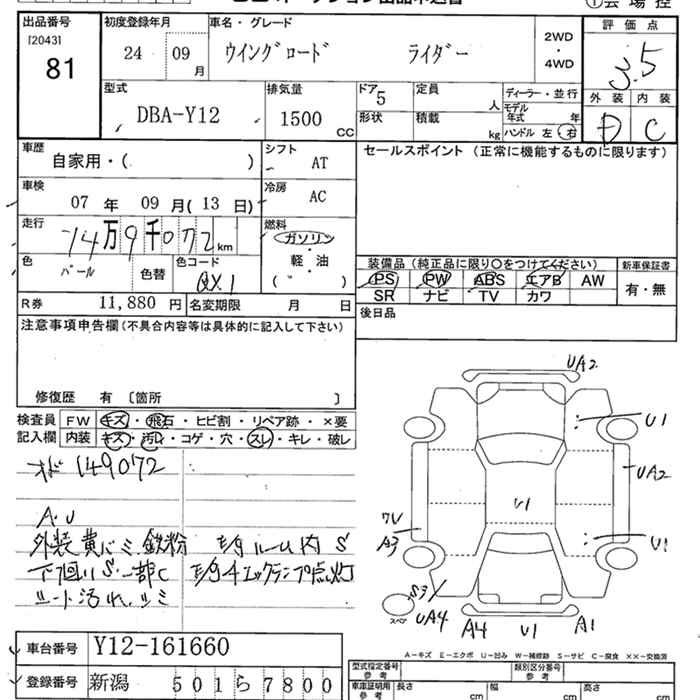 出品番号 初度登録年月 車名・グレード 評価点
[2043]
81
24 09月 ウイングロード ライダー
2WD・4WD
3.5
型式 排気量 ドア 定員 ディーラー・並行 外装 内装
DBA-Y12 1500 CC 5 人 モデル年式 年
形状 積載 kg ハンドル 左 右 D C
車歴 シフト セールスポイント(正常に機能するものに限ります)
自家用・( ) AT
車検 冷房
07年 09月(13日) AC
走行 燃料
14万9千072km ガソリン
色 色替 色コード 軽・油 装備品(純正品に限り○をつけてください) 新車保証書
パール QX1 ( ) PS PW ABS エアB AW 有・無
SR ナビ TV カワ
R券 11,880円 名変期限 月 日 後日品
注意事項申告欄(不具合内容等は具体的に記入して下さい)
修復歴 有 〔箇所 〕
検査員 FW キズ・飛石・ヒビ割・リペア跡・×要
記入欄 内装 キズ・汚れ・コゲ・穴・スレ・キレ・破レ
149072
A・U
外装黄バミ 鉄粉
下回りS一部C
シート汚れ、シミ
エンジンルーム内S
エンジンチェックランプ点灯
UA2
U1
UA2
U1
U1
A3
S3
UA4
A4
U1
A1
スペア
A-キズ E-エクボ U-凹み W-補修跡 S-サビ C-腐食 XX-交換済
車台番号 Y12-161660
登録番号 新潟 501 ら 7800
型式指定番号 参考 類別区分番号 参考
車庫証明用 参考 長さ cm 幅 cm 高さ cm